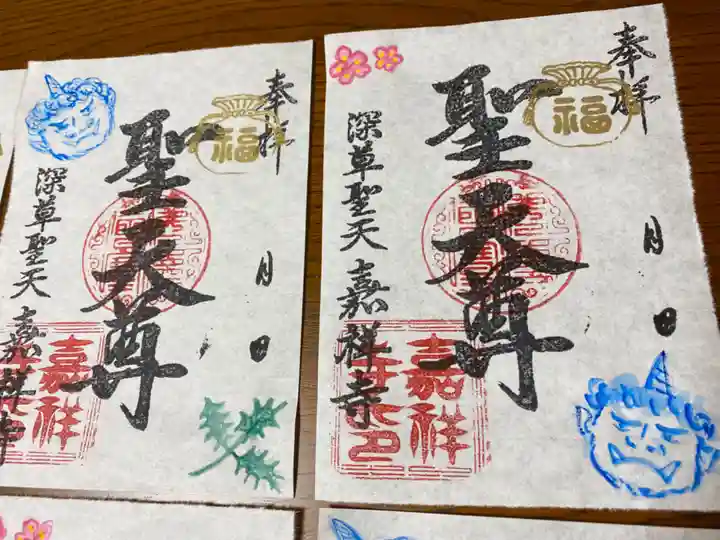 奉拝
福
聖天尊
月 日
深草聖天 嘉祥寺
嘉祥
寺之印
奉拝
福
聖天尊
月 日
深草聖天 嘉祥寺
嘉祥